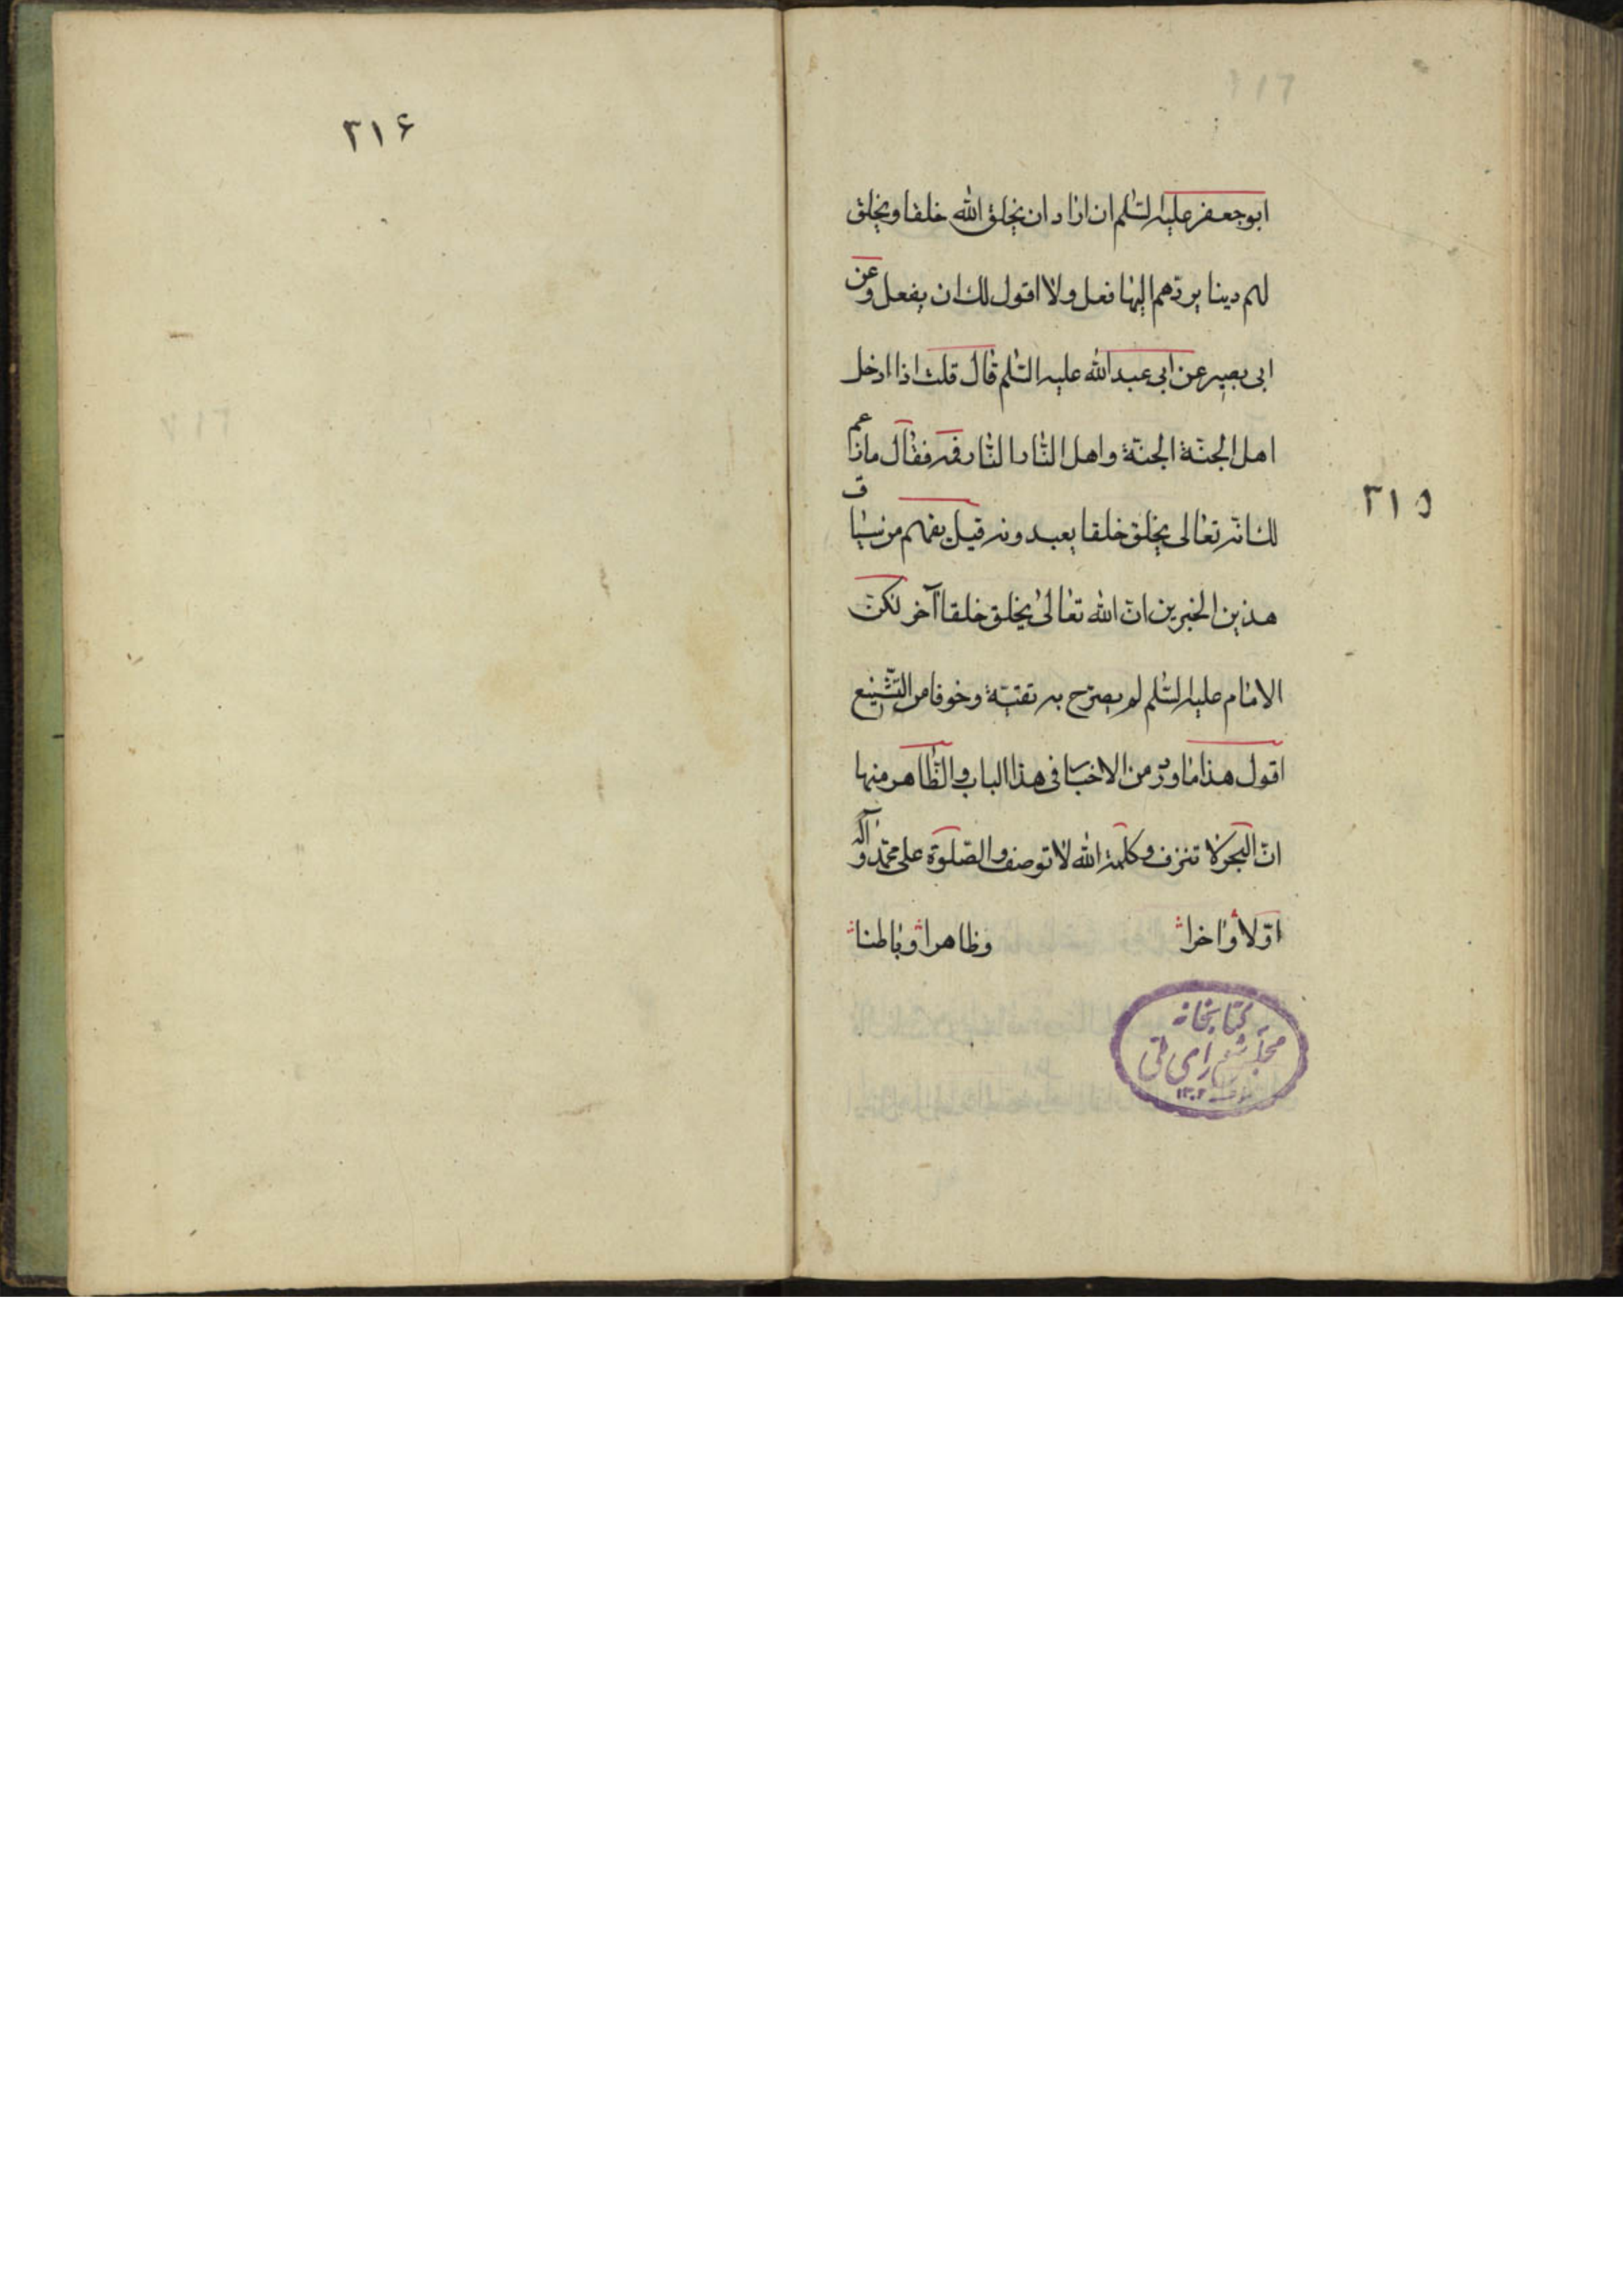 ابوجعفر علیه السّلم ان اراد ان یخلق الله خلقا و یخلق
لهم دینا یردّهم الیها فعل ولا اقول لك ان یفعل وعن
ابی بصیر عن ابی عبد الله علیه السّلم قال قلت اذا ادخل
اهل الجنّة الجنّة واهل النّار النّار فمه فقال ماذا عم
لك انّه تعالی یخلق خلقا یعبدونه قیل یفهم من سیاق
هذین الخبرین انّ الله تعالی یخلق خلقا آخر لكنّ
الامام علیه السّلم لم یصرّح به تقیّة وخوفا من التّشنیع
اقول هذا ما ورد من الاخبار فی هذا الباب والظّاهر منها
انّ البحر لا تنزف و كلمة الله لا توصف والصّلوة علی محمّد وآله
اوّلا واخرا وظاهرا وباطنا
کتابخانه
مجلس شورای ملی
۱۳۰۲
۲۱۵
۲۱۶